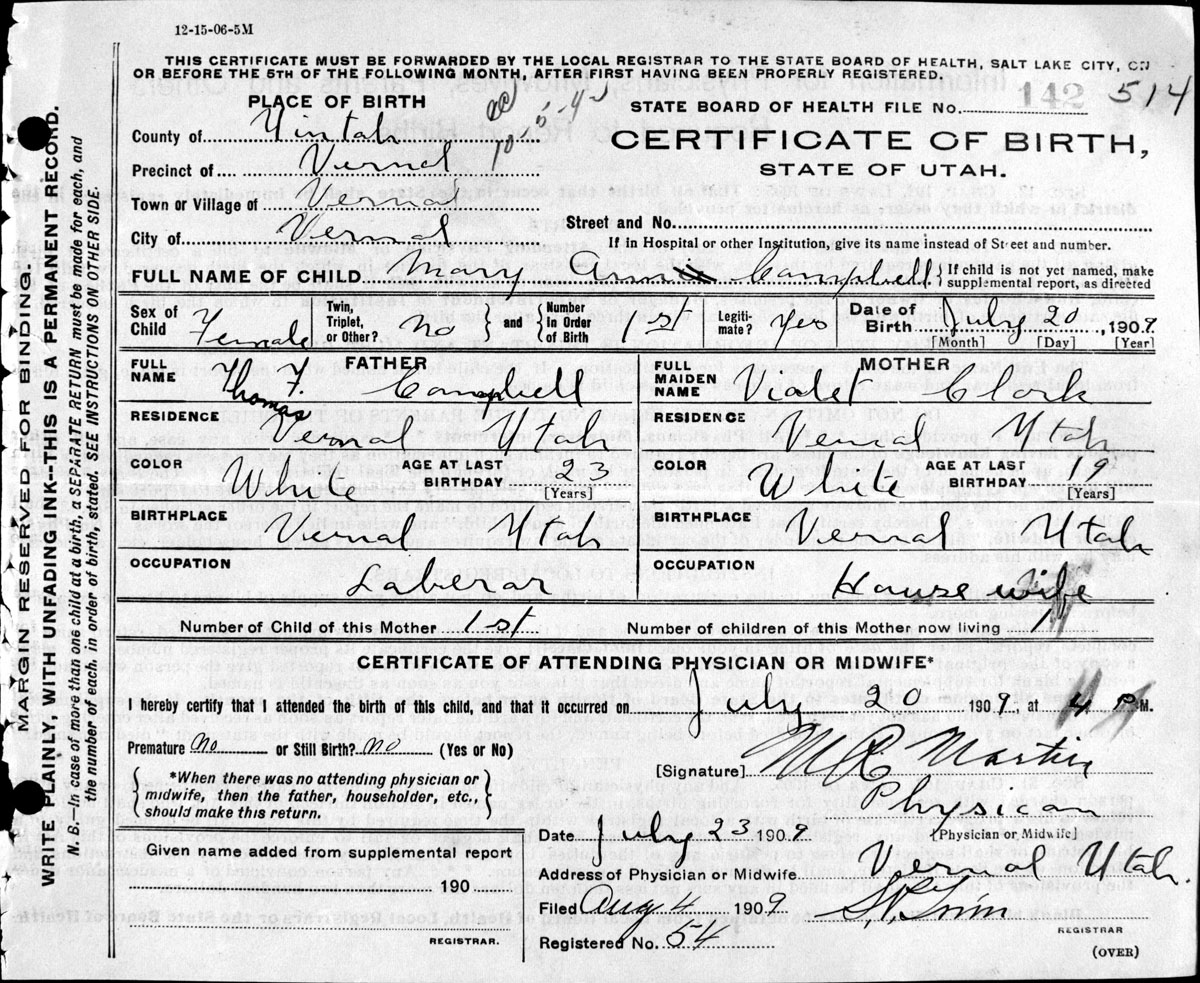 12-15-06-5M
THIS CERTIFICATE MUST BE FORWARDED BY THE LOCAL REGISTRAR TO THE STATE BOARD OF HEALTH, SALT LAKE CITY, ON
OR BEFORE THE 5TH OF THE FOLLOWING MONTH, AFTER FIRST HAVING BEEN PROPERLY REGISTERED.
MARGIN RESERVED FOR BINDING.
WRITE PLAINLY, WITH UNFADING INK—THIS IS A PERMANENT RECORD.
N. B.—In case of more than one child at a birth, a SEPARATE RETURN must be made for each, and
the number of each, in order of birth, stated. SEE INSTRUCTIONS ON OTHER SIDE.
PLACE OF BIRTH
County of Uintah
Precinct of Vernal
Town or Village of Vernal
City of Vernal
STATE BOARD OF HEALTH FILE No. 142 514
CERTIFICATE OF BIRTH,
STATE OF UTAH.
Street and No.
If in Hospital or other Institution, give its name instead of Street and number.
FULL NAME OF CHILD Mary Ann Campbell } If child is not yet named, make
supplemental report, as directed
Sex of Child Female Twin, Triplet, or Other? No { and } Number in Order of Birth 1st Legitimate? Yes Date of Birth July 20, 1909
[Month] [Day] [Year]
FATHER
FULL NAME Thomas F. Campbell
RESIDENCE Vernal Utah
COLOR White AGE AT LAST BIRTHDAY 23 [Years]
BIRTHPLACE Vernal Utah
OCCUPATION Laberar
MOTHER
FULL MAIDEN NAME Violet Clark
RESIDENCE Vernal Utah
COLOR White AGE AT LAST BIRTHDAY 19 [Years]
BIRTHPLACE Vernal Utah
OCCUPATION House wife
Number of Child of this Mother 1st Number of children of this Mother now living 1
CERTIFICATE OF ATTENDING PHYSICIAN OR MIDWIFE*
I hereby certify that I attended the birth of this child, and that it occurred on July 20 1909, at 4 P M.
Premature? No or Still Birth? No (Yes or No)
{ *When there was no attending physician or
midwife, then the father, householder, etc.,
should make this return. }
[Signature] M R Martin
Physician
[Physician or Midwife]
Date July 23 1909
Given name added from supplemental report
190
REGISTRAR.
Address of Physician or Midwife Vernal Utah.
Filed Aug 4 1909
REGISTRAR
Registered No. 54
(OVER)